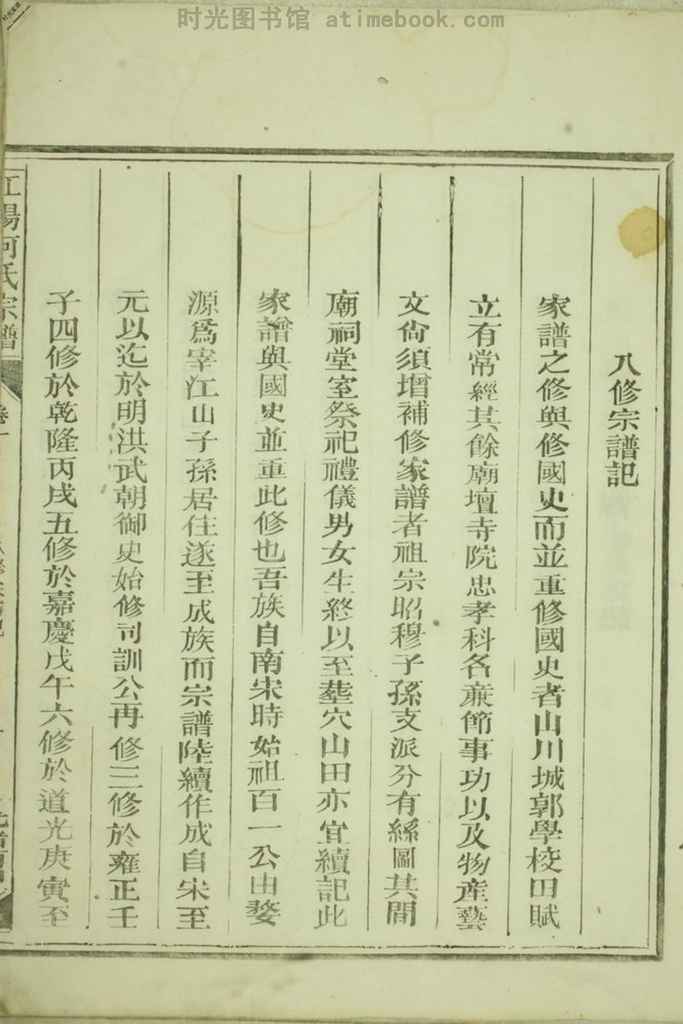 时光图书馆 atimebook.com
八修宗譜記
家譜之修與修國史而並重修國史者山川城郭學校田賦
立有常經其餘廟壇寺院忠孝科名亷節事功以及物產藝
文尙須增補修家譜者祖宗昭穆子孫支派分有絲圖其間
廟祠堂室祭祀禮儀男女生終以至塟穴山田亦宜續記此
家譜與國史並重此修也吾族自南宋時始祖百一公由婺
源爲宰江山子孫居住遂至成族而宗譜陸續作成自宋至
元以迄於明洪武朝御史始修司訓公再修三修於雍正壬
子四修於乾隆丙戌五修於嘉慶戊午六修於道光庚寅至
江陽何氏宗譜
卷一